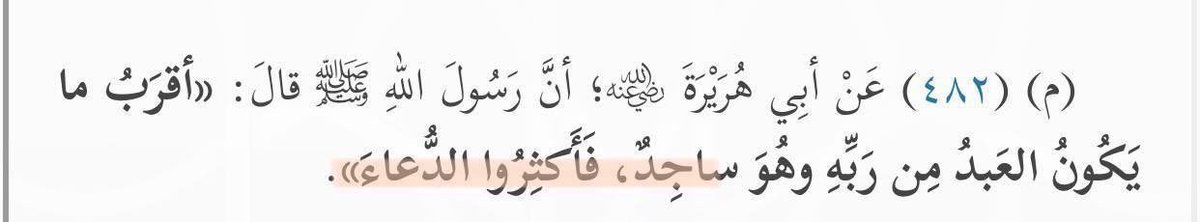 (م) (٤٨٢) عَنْ أَبِي هُرَيْرَةَ رضي الله عنه؛ أنَّ رَسُولَ اللهِ ﷺ قالَ: «أقرَبُ ما
يَكُونُ العَبدُ مِن رَبِّهِ وهُوَ ساجِدٌ، فَأَكثِرُوا الدُّعاءَ».